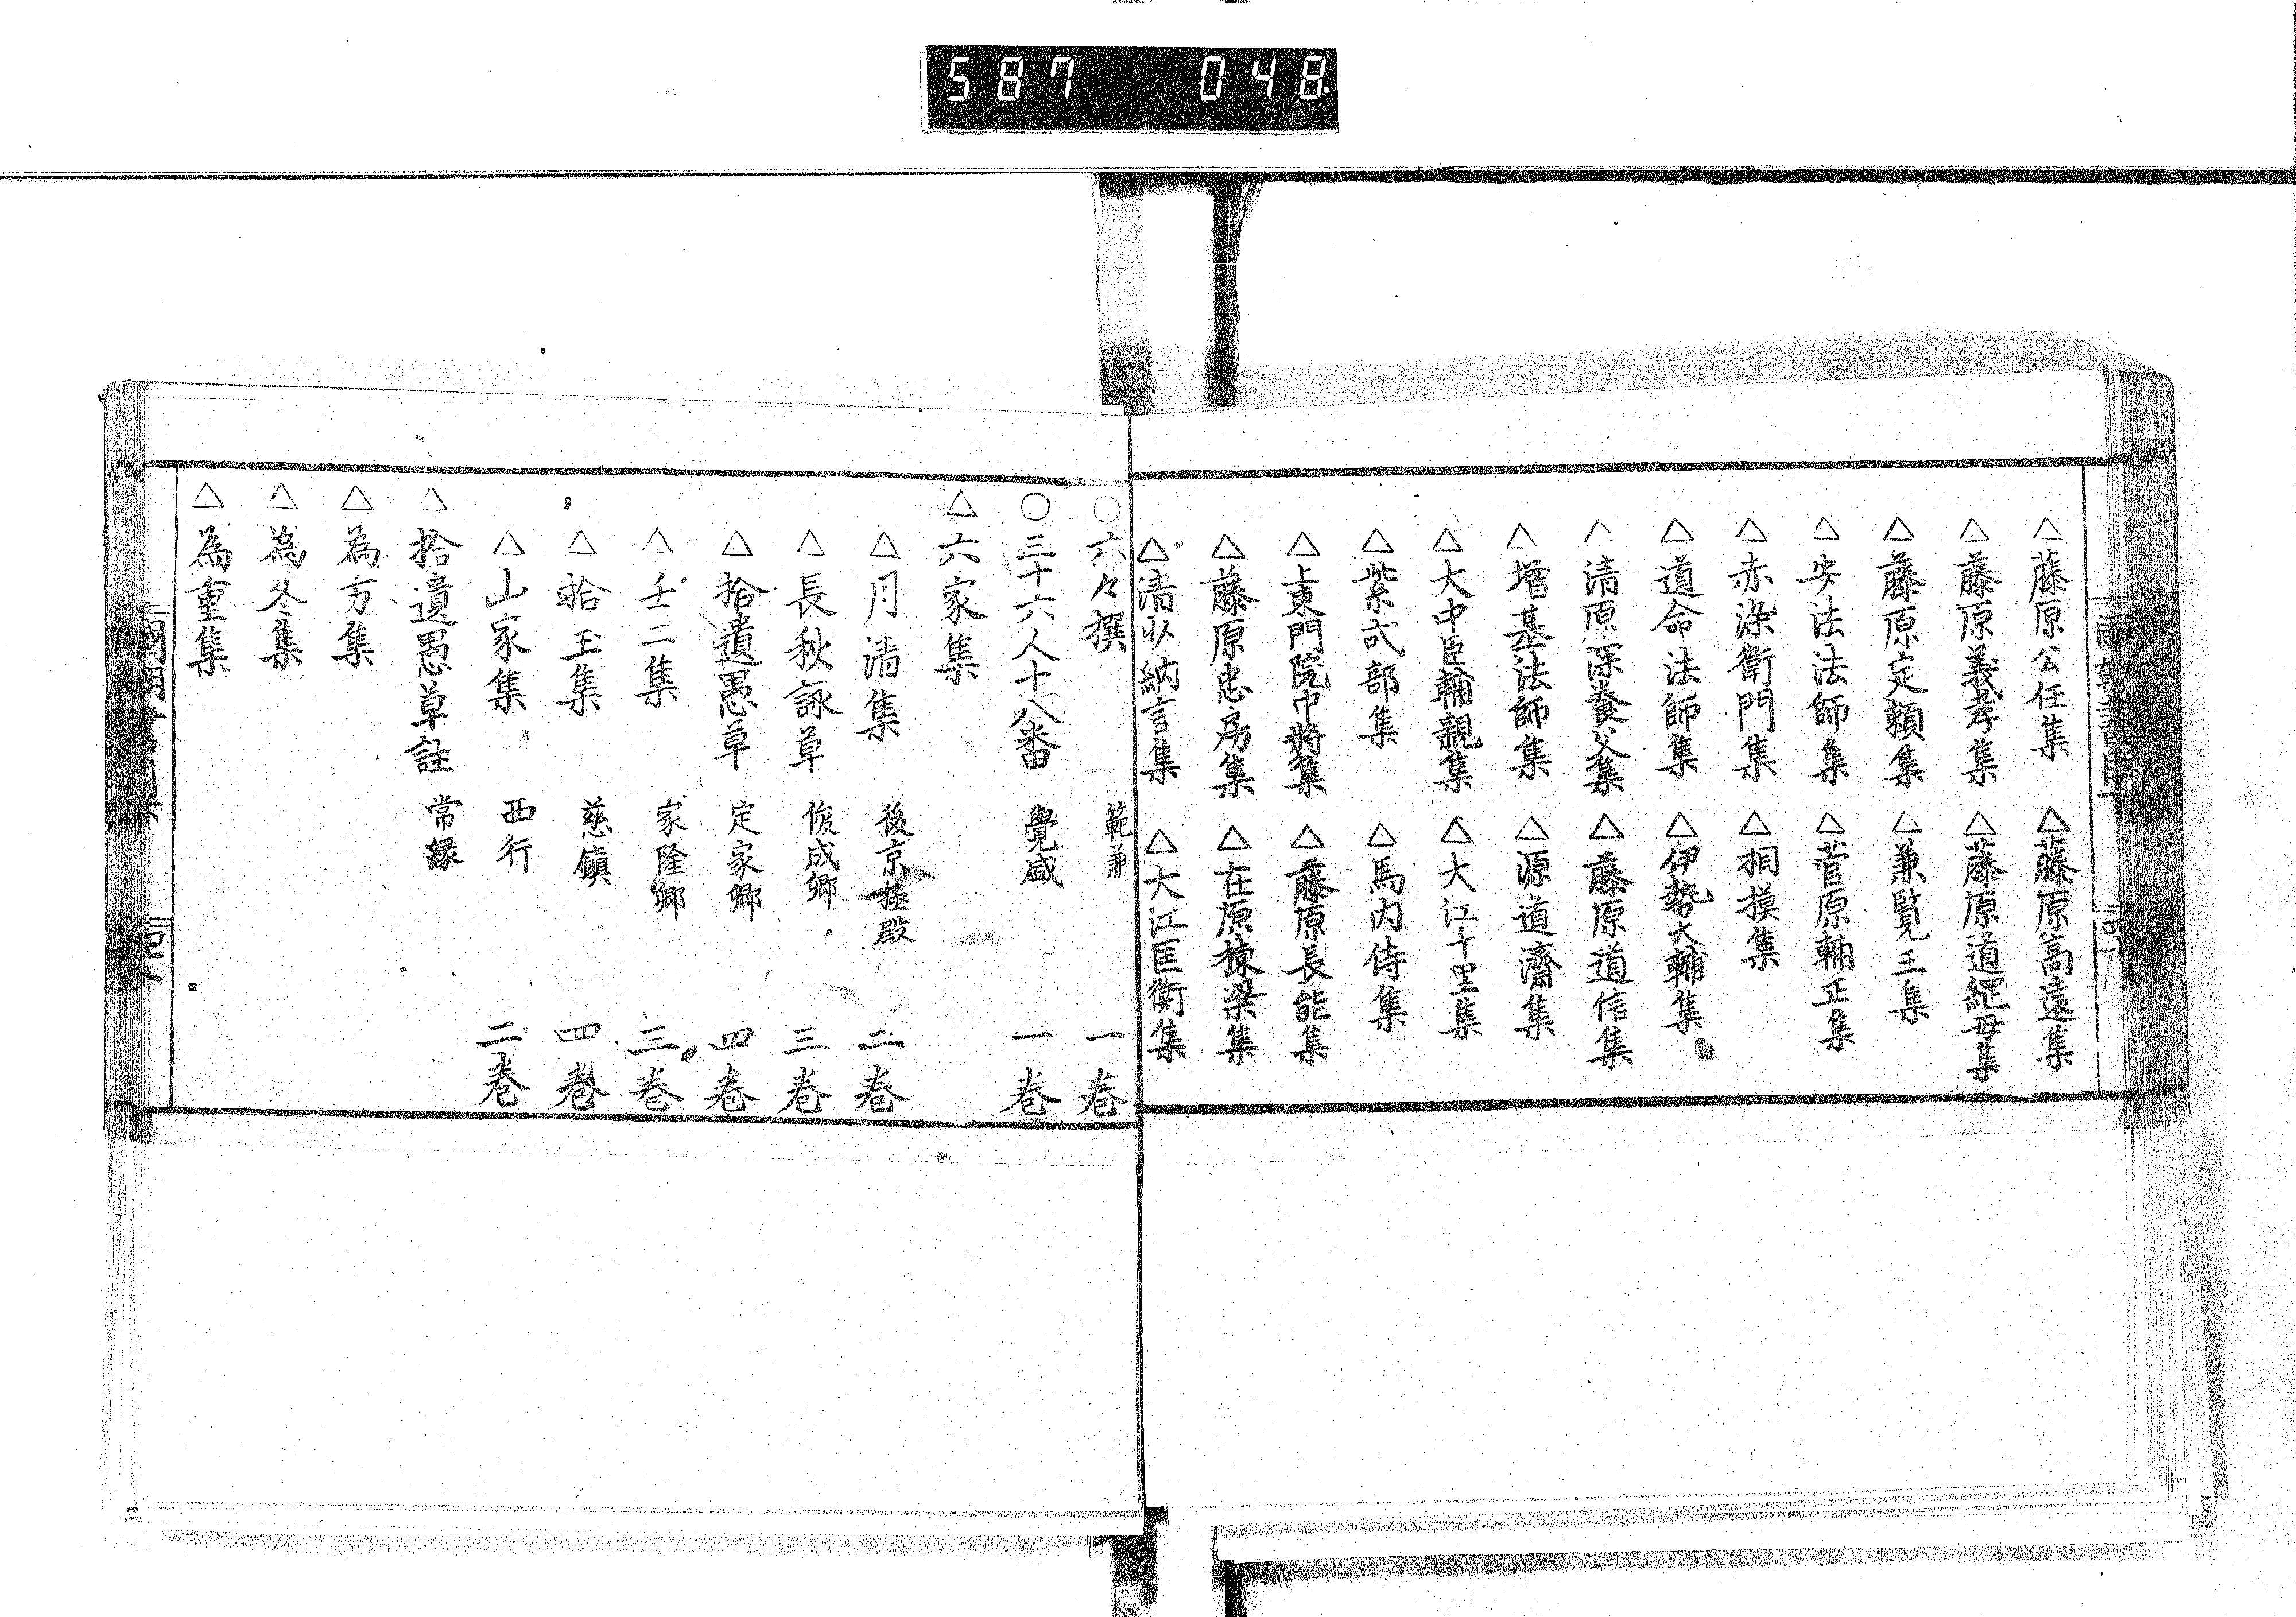 587 048
△藤原公任集 △藤原高遠集
△藤原義孝集 △藤原道綱母集
△藤原定頼集 △兼覧王集
△安法法師集 △菅原輔正集
△赤染衛門集 △相摸集
△道命法師集 △伊勢大輔集
△清原深養父集 △藤原道信集
△増基法師集 △源道濟集
△大中臣輔親集 △大江千里集
△紫式部集 △馬内侍集
△上東門院中將集 △藤原長能集
△藤原忠房集 △在原棟梁集
△清少納言集 △大江匡衡集
○六々撰 範兼 一巻
○三十六人十八番 覺盛 一巻
△六家集
△月清集 後京極殿 二巻
△長秋詠草 俊成卿 三巻
△拾遺愚草 定家卿 四巻
△壬二集 家隆卿 三巻
△拾玉集 慈鎭 四巻
△山家集 西行 二巻
△拾遺愚草註 常縁
△為方集
△為冬集
△為重集